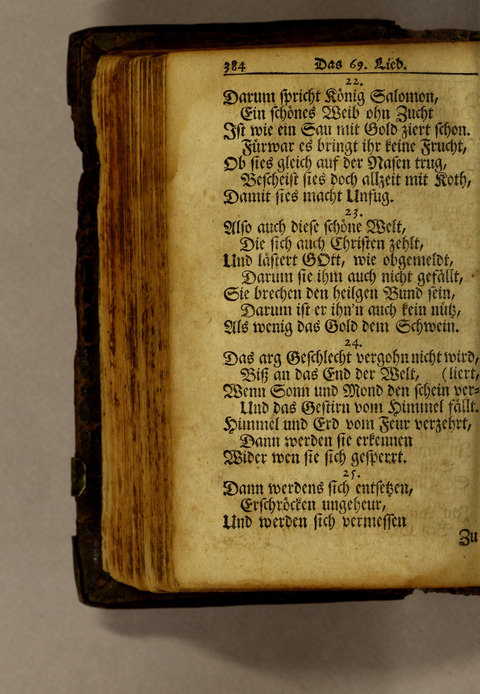 384 Das 69. Lied.
22.
Darum spricht König Salomon,
Ein schönes Weib ohn Zucht
Ist wie ein Sau mit Gold ziert schon.
Fürwar es bringt ihr keine Frucht,
Ob sies gleich auf der Nasen trug,
Bescheist sies doch allzeit mit Koth,
Damit sies macht Unfug.
23.
Also auch diese schöne Welt,
Die sich auch Christen zehlt,
Und lästert GOtt, wie obgemeldt,
Darum sie ihm auch nicht gefällt,
Sie brechen den heilgen Bund sein,
Darum ist er ihn'n auch kein nütz,
Als wenig das Gold dem Schwein.
24.
Das arg Geschlecht vergohn nicht wird,
Biß an das End der Welt, (liert,
Wenn Sonn und Mond den schein ver-
Und das Gestirn vom Himmel fällt.
Himmel und Erd vom Feur verzehrt,
Dann werden sie erkennen
Wider wen sie sich gesperrt.
25.
Dann werdens sich entsetzen,
Erschröcken ungeheur,
Und werden sich vermessen
Zu